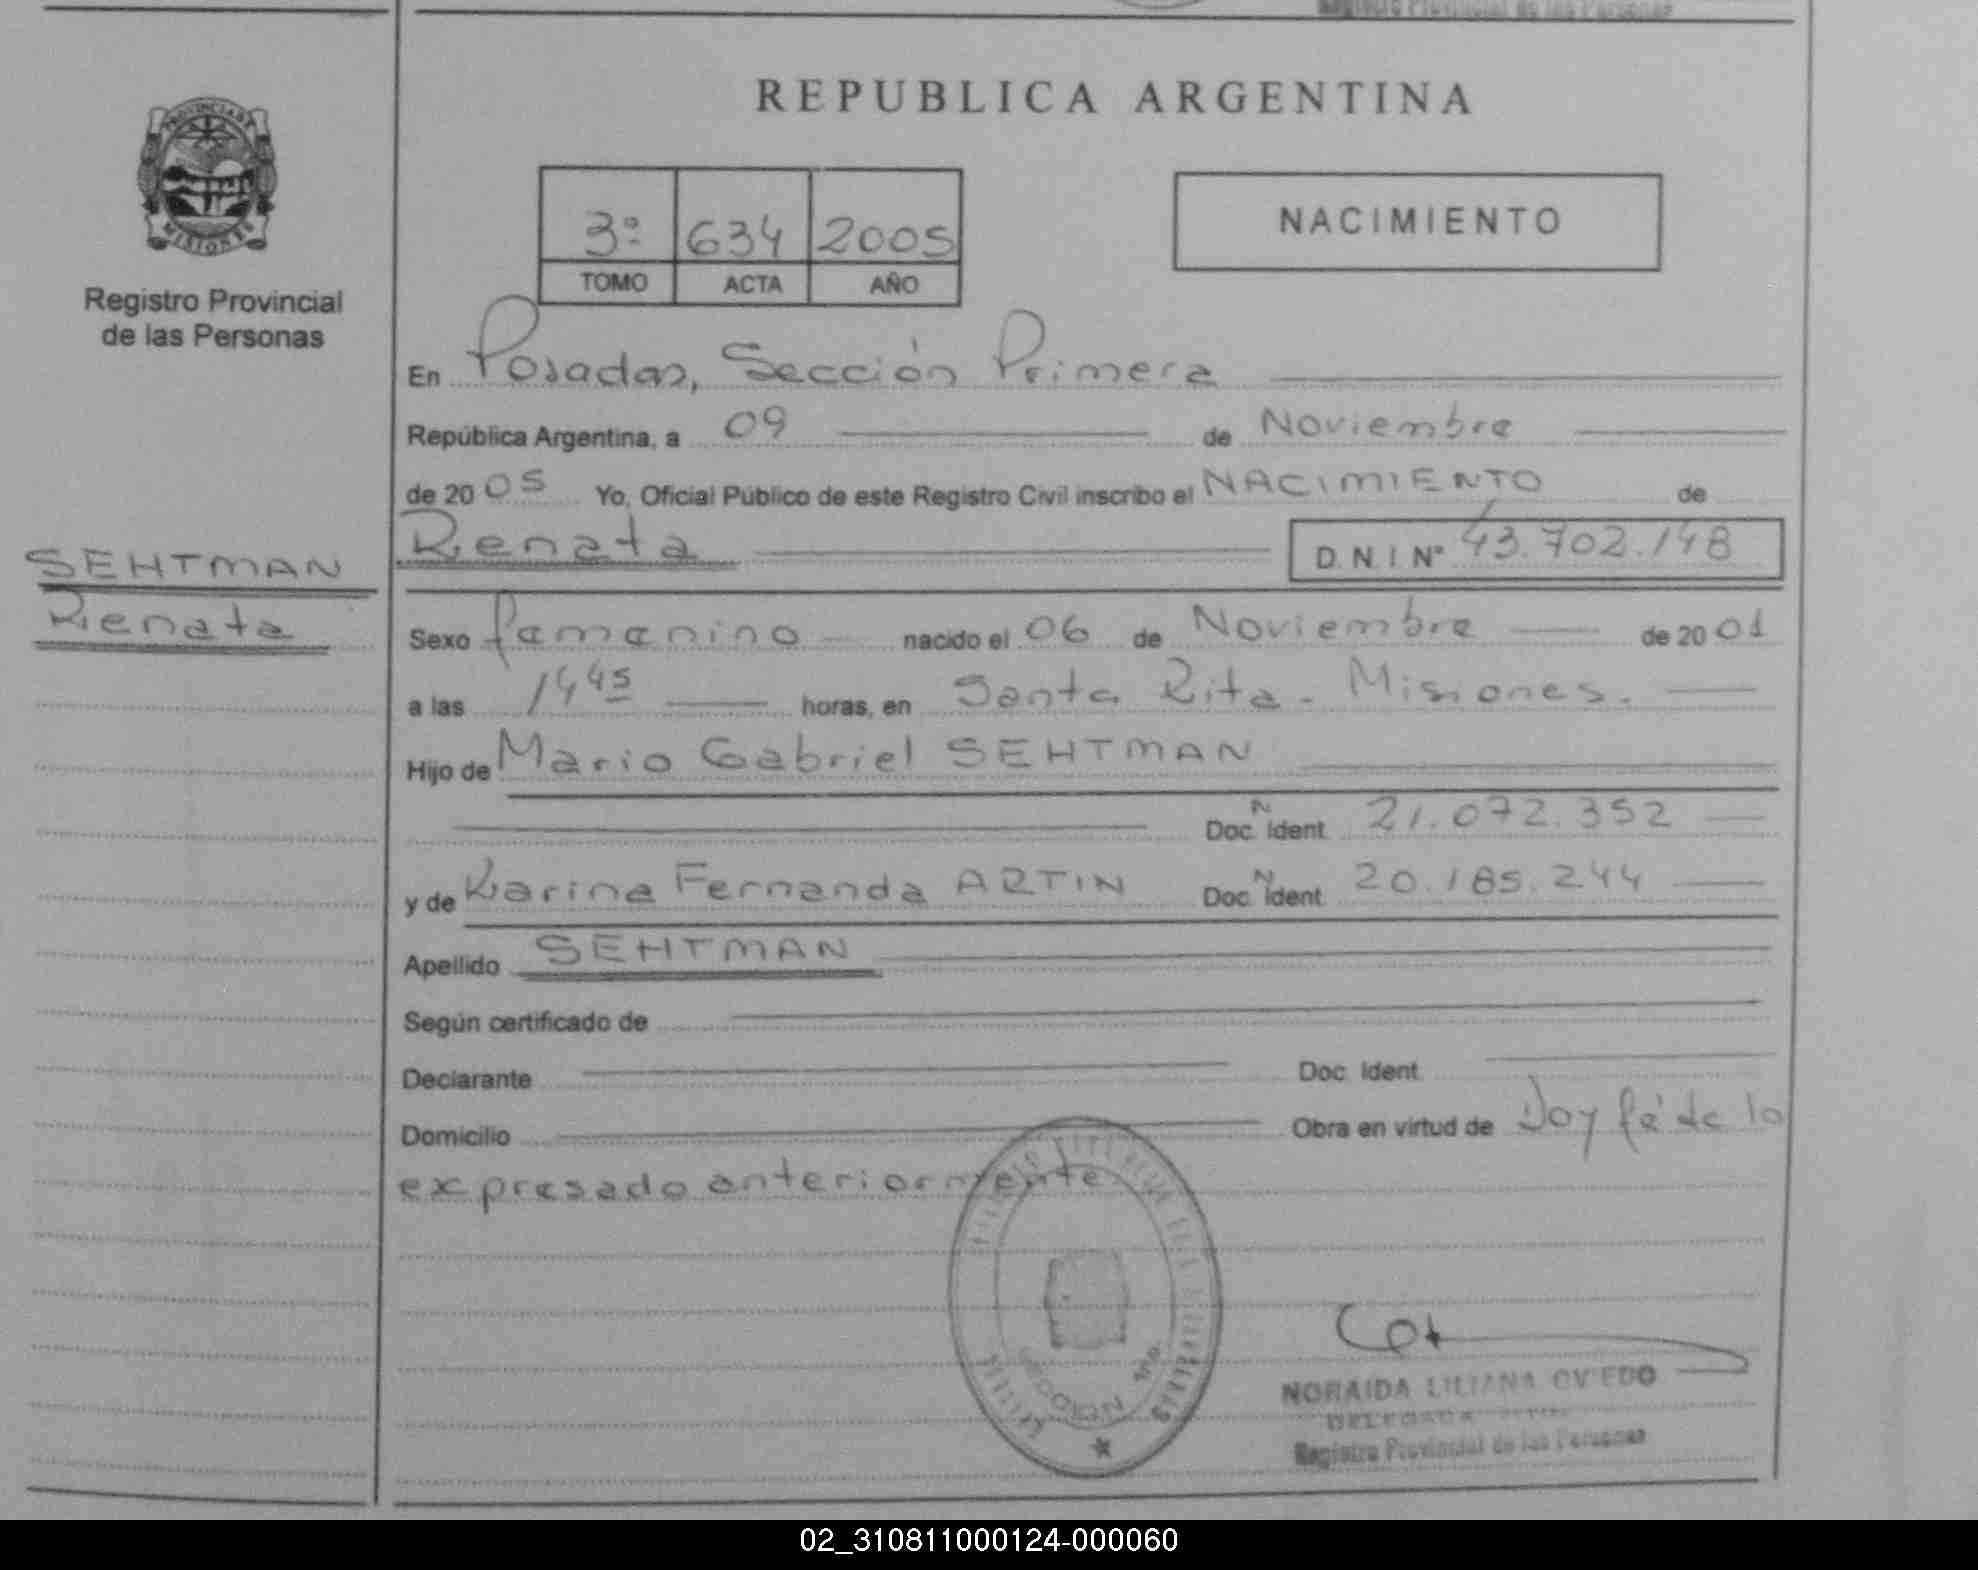 Registro Provincial de las Personas
REPUBLICA ARGENTINA
PROVINCIA DE
MISIONES
Registro Provincial
de las Personas
3º 634 2005
TOMO ACTA AÑO
NACIMIENTO
En Posadas, Sección Primera
República Argentina, a 09 de Noviembre
de 2005 Yo, Oficial Público de este Registro Civil inscribo el NACIMIENTO de
Renata D.N.I Nº 43.702.148
SEHTMAN
Renata
Sexo femenino nacido el 06 de Noviembre de 2001
a las 14 45 horas, en Santa Rita - Misiones.
Hijo de Mario Gabriel SEHTMAN
Doc. N Ident 21.072.352
y de Karina Fernanda ARTIN Doc. N Ident 20.185.244
Apellido SEHTMAN
Según certificado de
Declarante Doc. Ident.
Domicilio Obra en virtud de Doy fé de lo
expresado anteriormente
SECCION 1RA
NORAIDA LILIANA OVIEDO
DELEGADA
Registro Provincial de las Personas
02_310811000124-000060